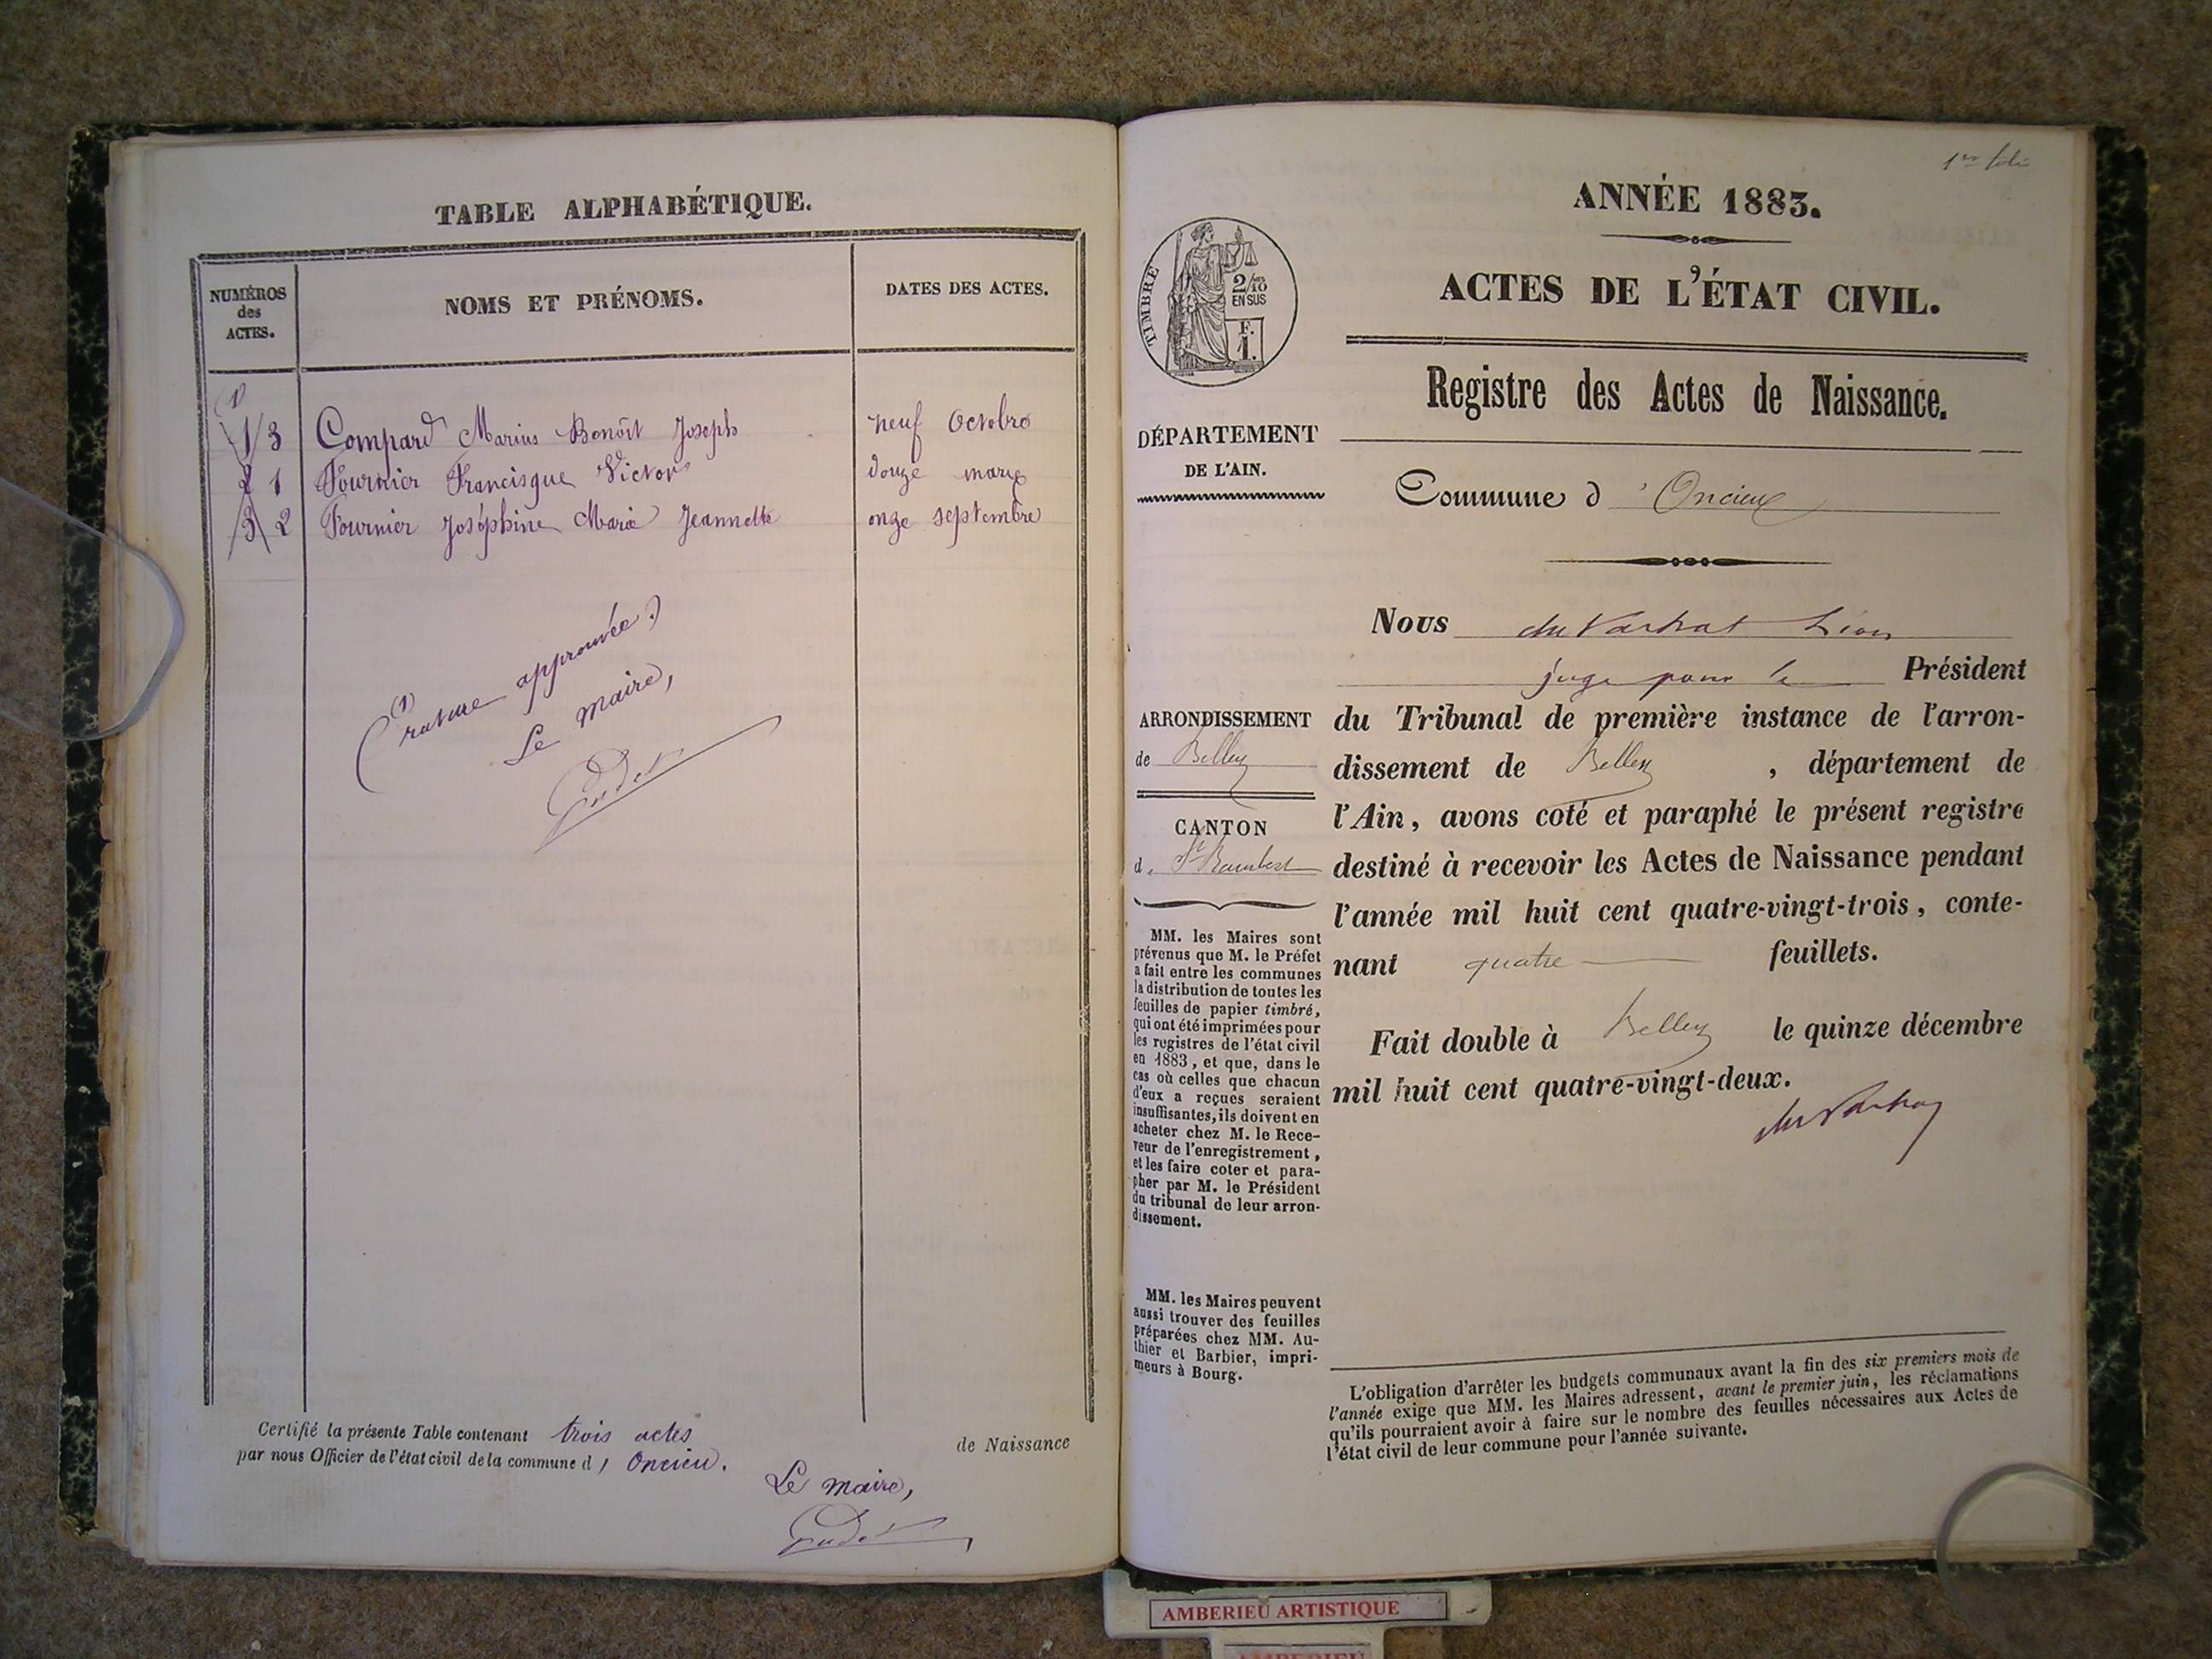 TABLE ALPHABÉTIQUE.
NUMÉROS
des
ACTES.
NOMS ET PRÉNOMS.
DATES DES ACTES.
(1)
1 3 Compard Marius Benoît Joseph neuf Octobre
2 1 Fournier Francisque Victor douze mars
3 2 Fournier Joséphine Marie Jeannette onze septembre
(1) rature approuvée)
Le maire,
Certifié la présente Table contenant trois actes de Naissance
par nous Officier de l'état civil de la commune d, Oncieu.
Le maire,
1er folio
ANNÉE 1883.
TIMBRE
2/10
EN SUS
F.
1.
ACTES DE L'ÉTAT CIVIL.
Registre des Actes de Naissance.
DÉPARTEMENT
DE L'AIN.
Commune d 'Oncieux
Nous
juge pour le Président
du Tribunal de première instance de l'arron-
dissement de Belley, département de
l'Ain, avons coté et paraphé le présent registre
destiné à recevoir les Actes de Naissance pendant
l'année mil huit cent quatre-vingt-trois, conte-
nant quatre feuillets.
Fait double à Belley le quinze décembre
mil huit cent quatre-vingt-deux.
ARRONDISSEMENT
de Belley
CANTON
d. St Rambert
MM. les Maires sont
prévenus que M. le Préfet
a fait entre les communes
la distribution de toutes les
feuilles de papier timbré,
qui ont été imprimées pour
les registres de l'état civil
en 1883, et que, dans le
cas où celles que chacun
d'eux a reçues seraient
insuffisantes, ils doivent en
acheter chez M. le Rece-
veur de l'enregistrement,
et les faire coter et para-
pher par M. le Président
du tribunal de leur arron-
dissement.
MM. les Maires peuvent
aussi trouver des feuilles
préparées chez MM. Au-
thier et Barbier, impri-
meurs à Bourg.
L'obligation d'arrêter les budgets communaux avant la fin des six premiers mois de
l'année exige que MM. les Maires adressent, avant le premier juin, les réclamations
qu'ils pourraient avoir à faire sur le nombre des feuilles nécessaires aux Actes de
l'état civil de leur commune pour l'année suivante.
AMBERIEU ARTISTIQUE
AMBERIEU